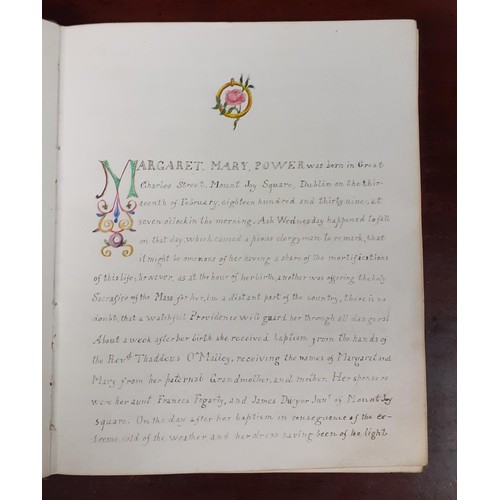 MARGARET, MARY, POWER was born in Great
Charles Street, Mount Joy Square, Dublin on the thir-
teenth of February, eighteen hundred and thirty nine, at
seven o'clock in the morning. Ash Wednesday happened to fall
on that day, which caused a pious clergyman to remark, that
it might be ominous of her having a share of the mortifications
of this life; however, as at the hour of her birth, another was offering the holy
Sacrifice of the Mass for her, in a distant part of the country, there is no
doubt, that a watchful Providence will guard her through all dangers.
About a week after her birth she received baptism from the hands of
the Revd. Thaddeus O'Malley, receiving the names of Margaret and
Mary from her paternal Grandmother, and mother. Her sponsors
were her aunt Frances Fogarty, and James Dwyer Junr. of Mount Joy
square. On the day after her baptism in consequence of the ex-
treme cold of the weather and her dress having been of too light